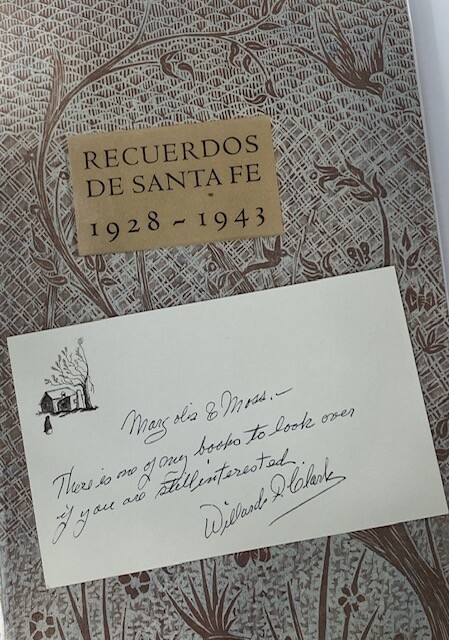 RECUERDOS
DE SANTA FE
1928 - 1943
Margolis & Moss. —
There is one of my books to look over
if you are still interested.
Willard F. Clark